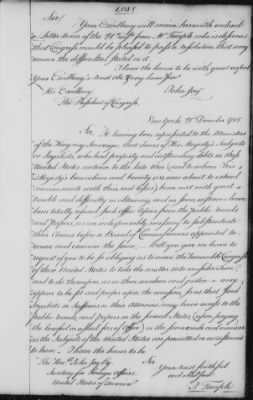 Sir/
Your Excellency will receive herewith enclosed
a Letter to me of the 21st inst. from Mr Temple who is desirous
that Congress would be pleased to pass a resolution that may
remove the difficulties stated in it.
I have the honor to be with great respect
Your Excellency's Most Obt and Very humble Servt
His Excellency John Jay
The President of Congress.
New York December 1785
Sir. It having been represented to the Ministers
of the King my Sovereign, that divers of His Majesty's Subjects
or Loyalists, who had property and outstanding debts in these
United States anterior to the late War (and to whom His
Majesty's benevolence and bounty are now about to extend
commensurate with their said losses) have met with great
trouble and difficulty in obtaining, and in some instances have
been totally refused such office Copies from the public records
and papers, as are indispensably necessary to substantiate
their Claims before a Board of Commissioners appointed to
receive and examine the same. Will you give me leave to
request of you to be so obliging as to move the Honorable Congress
of these United States to take the matter into consideration
and to let them pass, as in their wisdom and justice may
appear to be fit and proper upon the occasion, that such
Loyalists or Sufferers or their attornies may have access to the
public records and papers in the several States (upon paying
the lawful or usual fees of Office) in the same mode and manner
as the Subjects of the United States are permitted or accustomed
to have. I have the honor to be
Sir
The Honble John Jay Esq Your most faithful
Secretary for Foreign Affairs and obedient
United States of America J. Temple